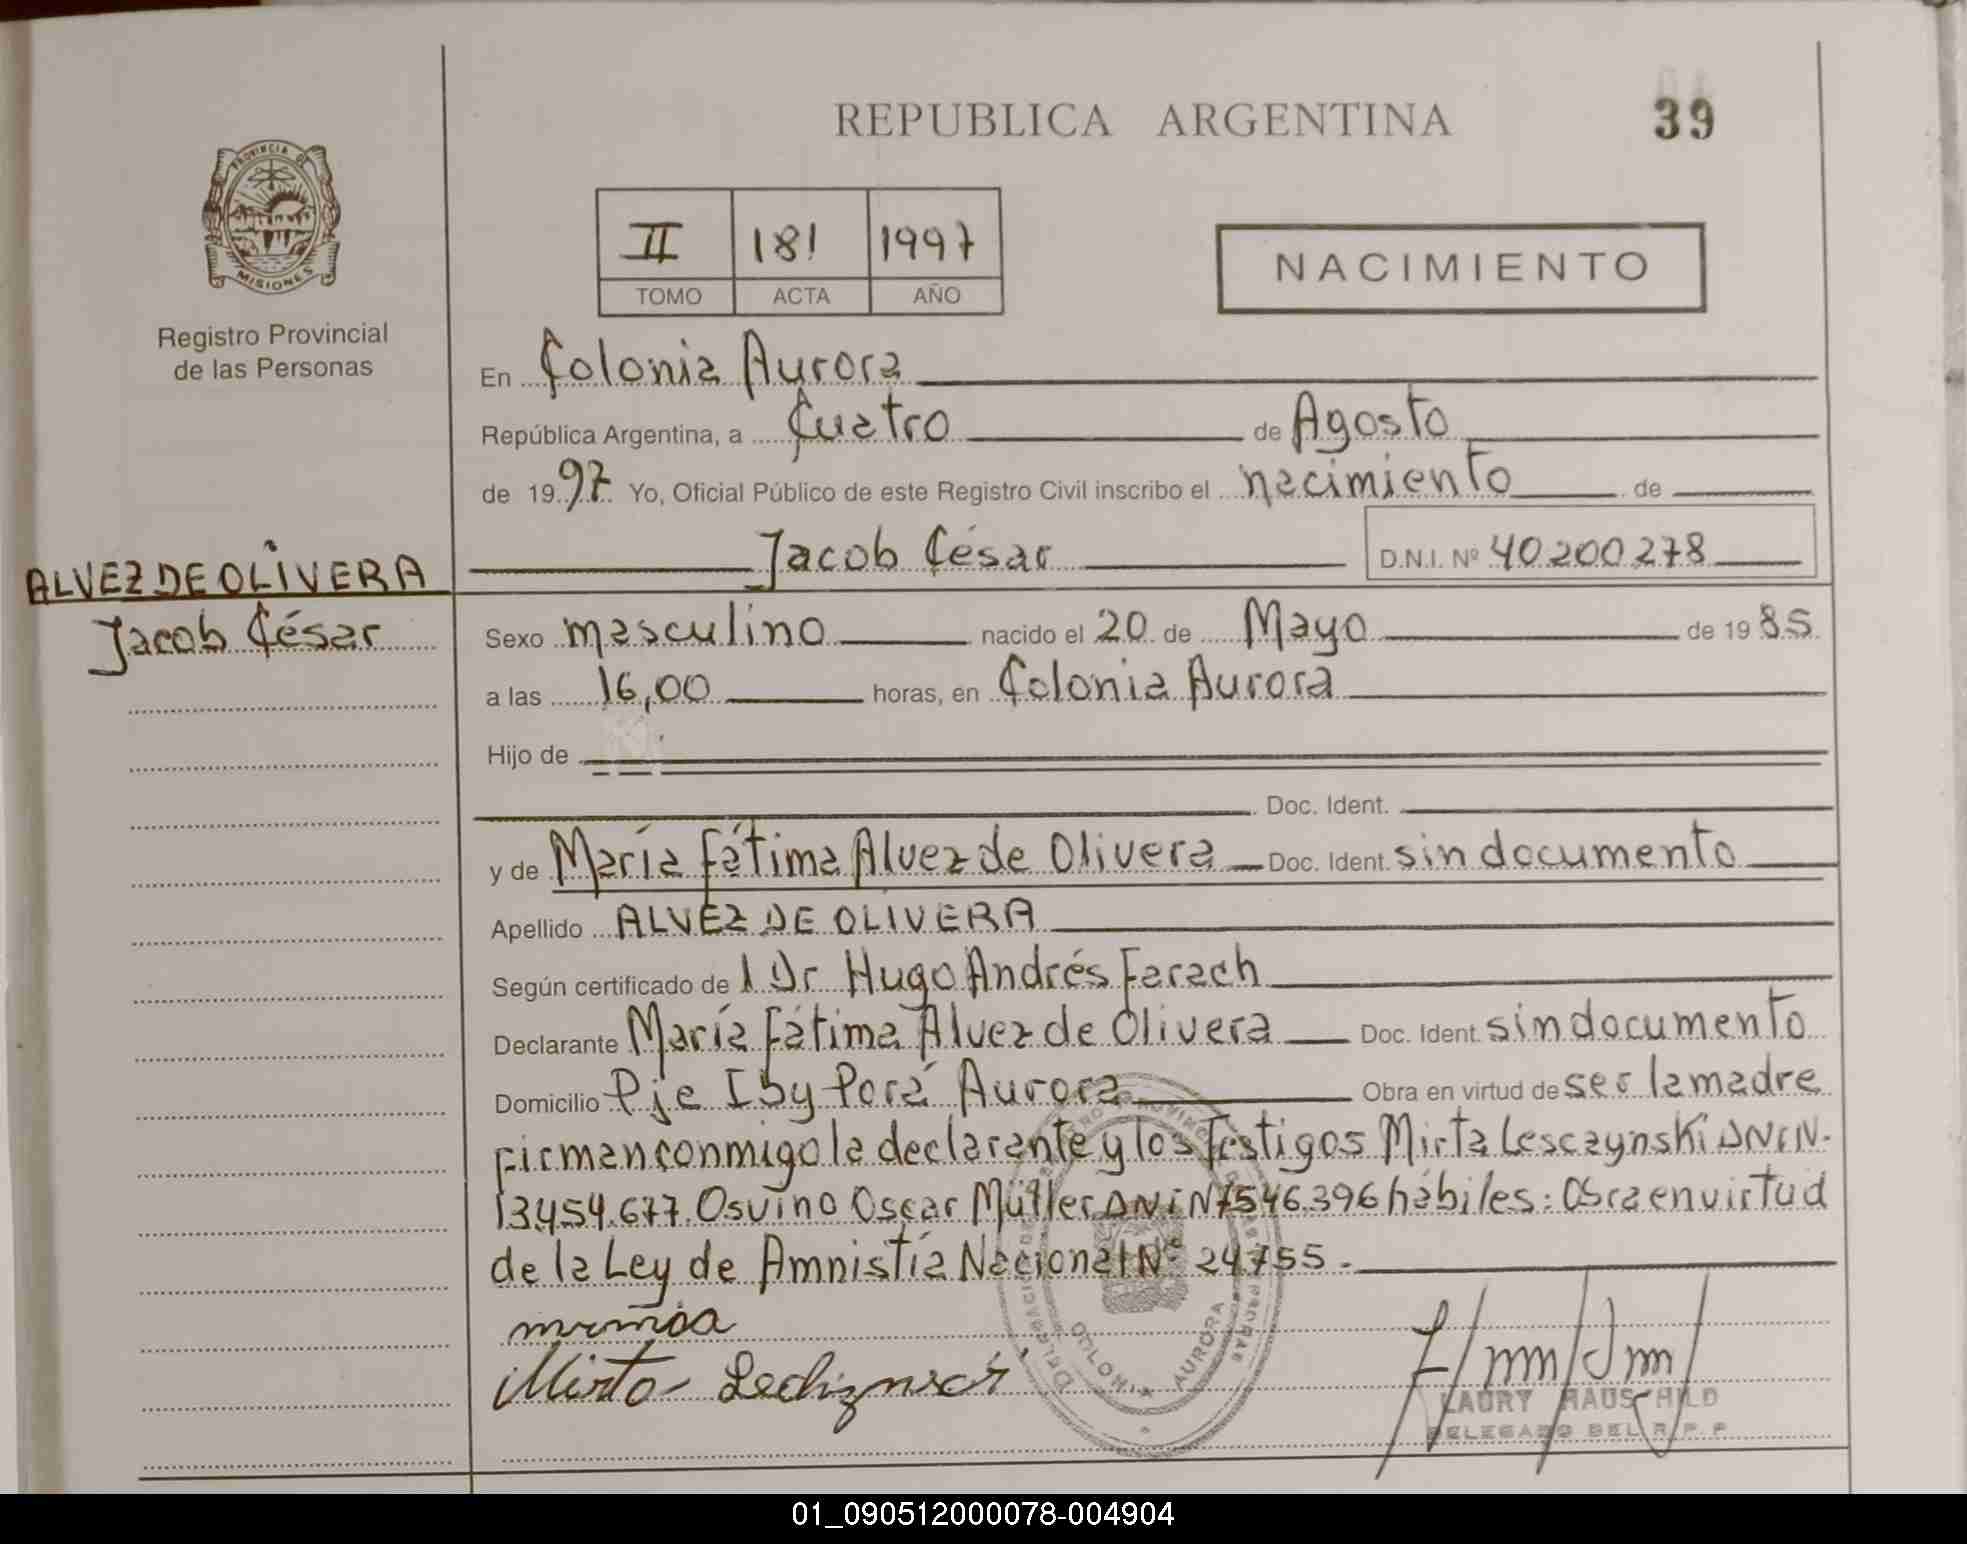 REPUBLICA ARGENTINA
39
PROVINCIA DE
MISIONES
Registro Provincial
de las Personas
II 181 1997
TOMO ACTA AÑO
NACIMIENTO
En Colonia Aurora
República Argentina, a Cuatro de Agosto
de 1997 Yo, Oficial Público de este Registro Civil inscribo el nacimiento de
Jacob César D.N.I. Nº 40200278
ALVEZ DE OLIVERA
Jacob César
Sexo masculino nacido el 20 de Mayo de 1985
a las 16,00 horas, en Colonia Aurora
Hijo de
Doc. Ident.
y de María Fátima Alvez de Olivera Doc. Ident. sin documento
Apellido ALVEZ DE OLIVERA
Según certificado de l Dr Hugo Andrés Farach
Declarante María Fátima Alvez de Olivera Doc. Ident. sin documento
Domicilio Pje Iby Porá Aurora Obra en virtud de ser la madre
firman conmigo la declarante y los testigos Mirta Lesczynski DNIN.
13454.677. Osvino Oscar Müller DNIN 7546.396 hábiles: Obra en virtud
de la Ley de Amnistía Nacional Nº 24755.-
Mirta
COLONIA AURORA
LAURY HAUSCHILD
DELEGADO DEL R.P.P
01_090512000078-004904